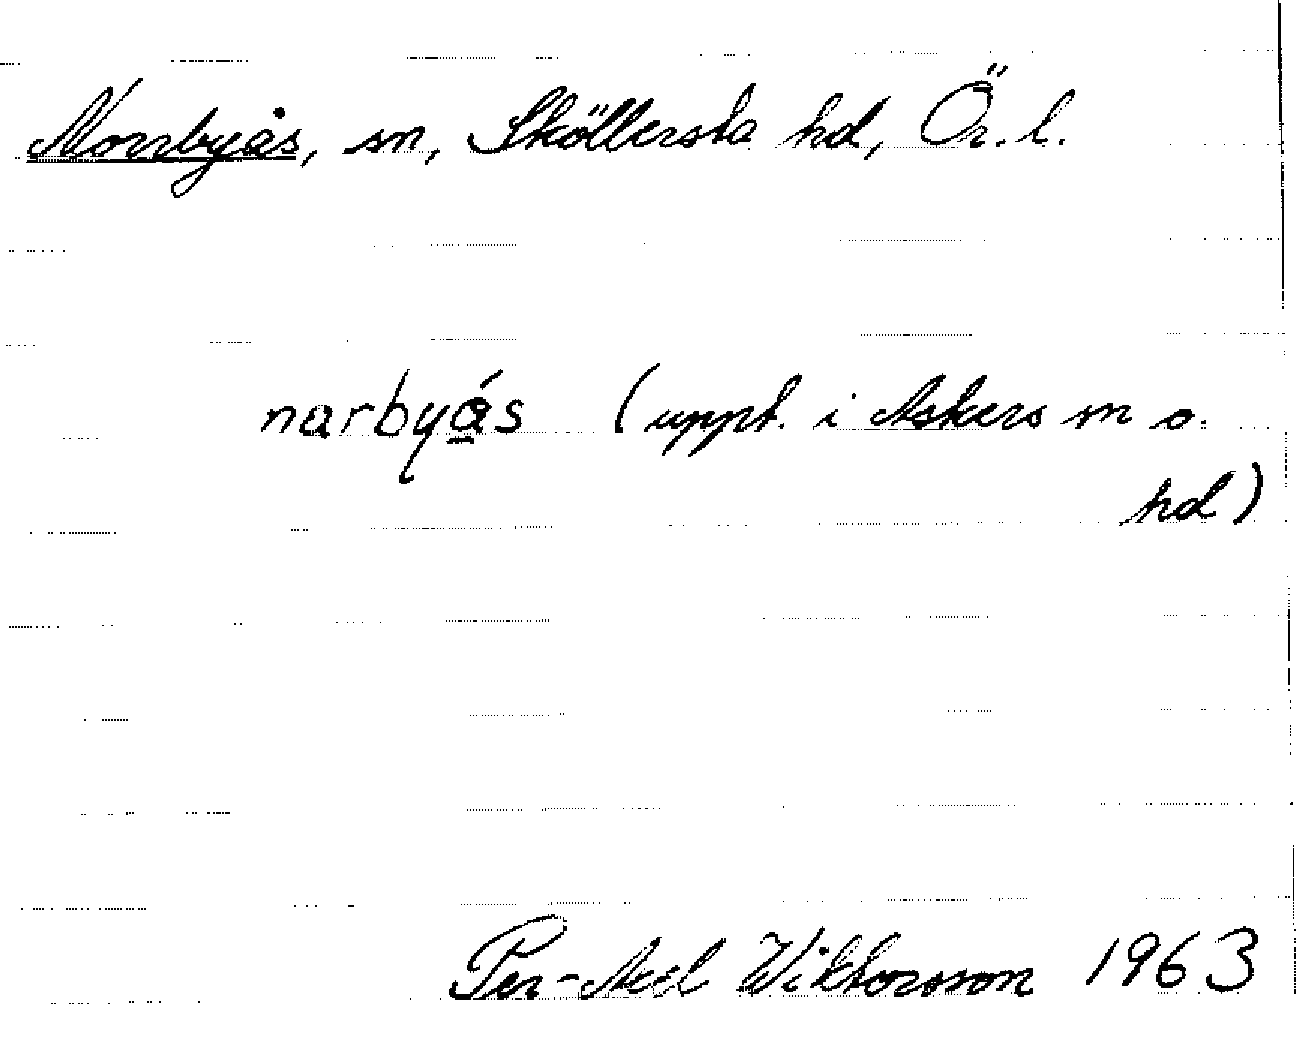 Norrbyås, sn, Sköllersta hd, Ör. l.
narbyás (uppt. i Askers sn o.
hd)
Per-Axel Wiktorsson 1963